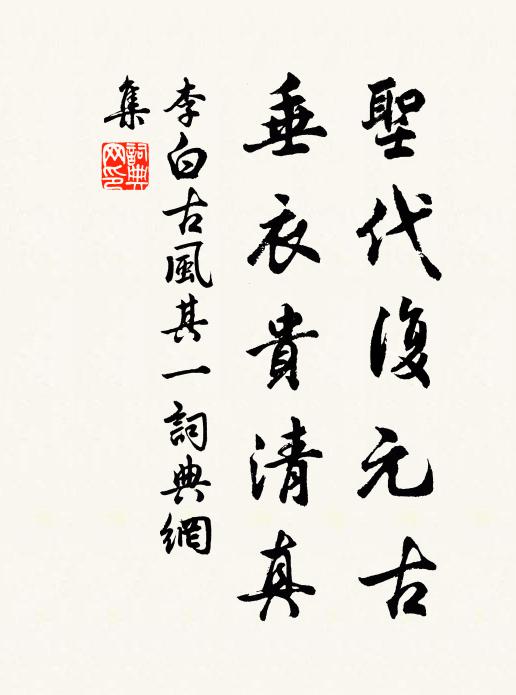 聖代復元古
垂衣貴清真
李白古風其一詞典網
集
詞典
网印